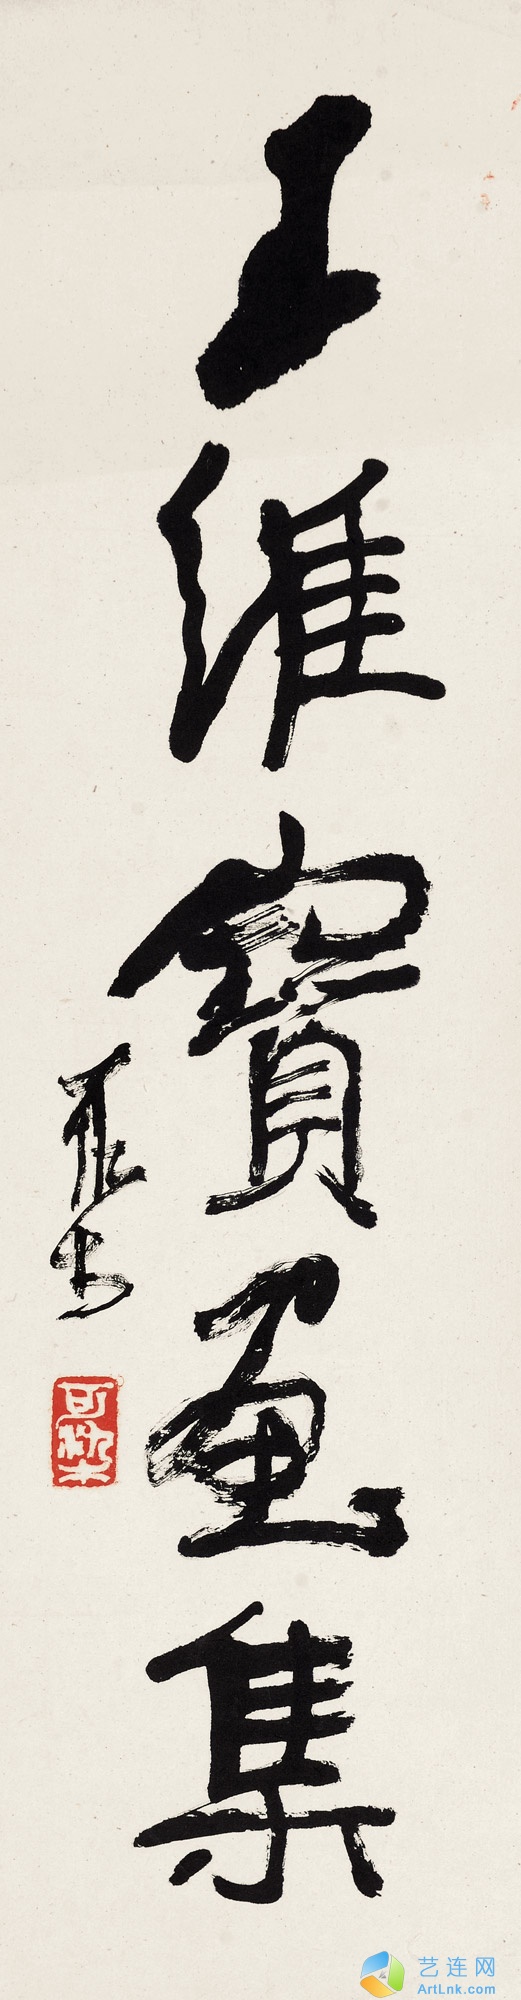 王维寶画集
可染
艺连网
ArtLnk.com